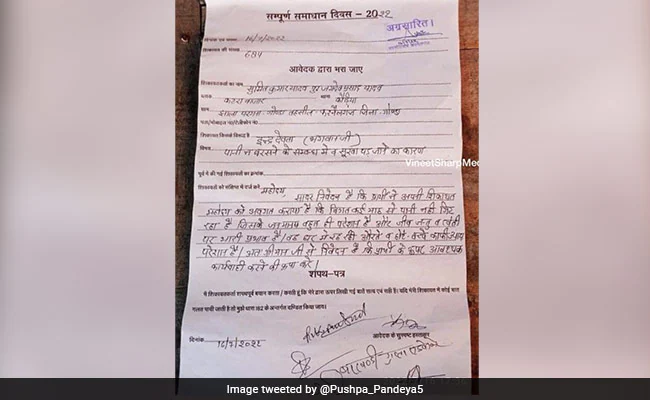 सम्पूर्ण समाधान दिवस – 2022
अग्रसारित।
16/7/2022
शिकायत की संख्या
684
आवेदक द्वारा भरा जाए
शिकायतकर्ता का नाम सुमित कुमार यादव पुत्र यादव
कटरा बाजार कौडिया
झाला परगना गोण्डा तहसील करनैलगंज जिला गोण्डा
शिकायत किससे सम्बन्धित है इन्द्र देवता (भगवान जी)
विषय पानी न बरसने के सम्बन्ध में व सूखा पड़ जाने का कारण
VineetSharpMed
पूर्व में की गई शिकायतों का क्रमांक
शिकायतों का संक्षिप्त में दर्ज करे महोदय
सादर निवेदन है कि प्रार्थी ने अपनी शिकायत
महोदय को अवगत कराया है कि विगत कई माह से पानी नहीं गिर
रहा है जिसके जनमानस बहुत ही परेशान है और जीव जन्तु व खेती
पर भारी प्रभाव है। घर में रह रही औरते व छोटे बच्चे काफी
परेशान है। अतः श्रीमान जी से निवेदन है कि प्रार्थी के ऊपर आवश्यक
कार्यवाही करने की कृपा करें।
शपथ-पत्र
मै शिकायतकर्ता शपथपूर्वक बयान करता / करती हूं कि मेरे द्वारा ऊपर लिखी गई बातें सत्य एवं सही है। यदि मेरी शिकायत में कोई बात
गलत पायी जाती है तो मुझे धारा 182 के अन्तर्गत दण्डित किया जाय।
दिनांक 16/7/2022
आवेदक के सुस्पष्ट हस्ताक्षर
Image tweeted by @Pushpa_Pandeya5